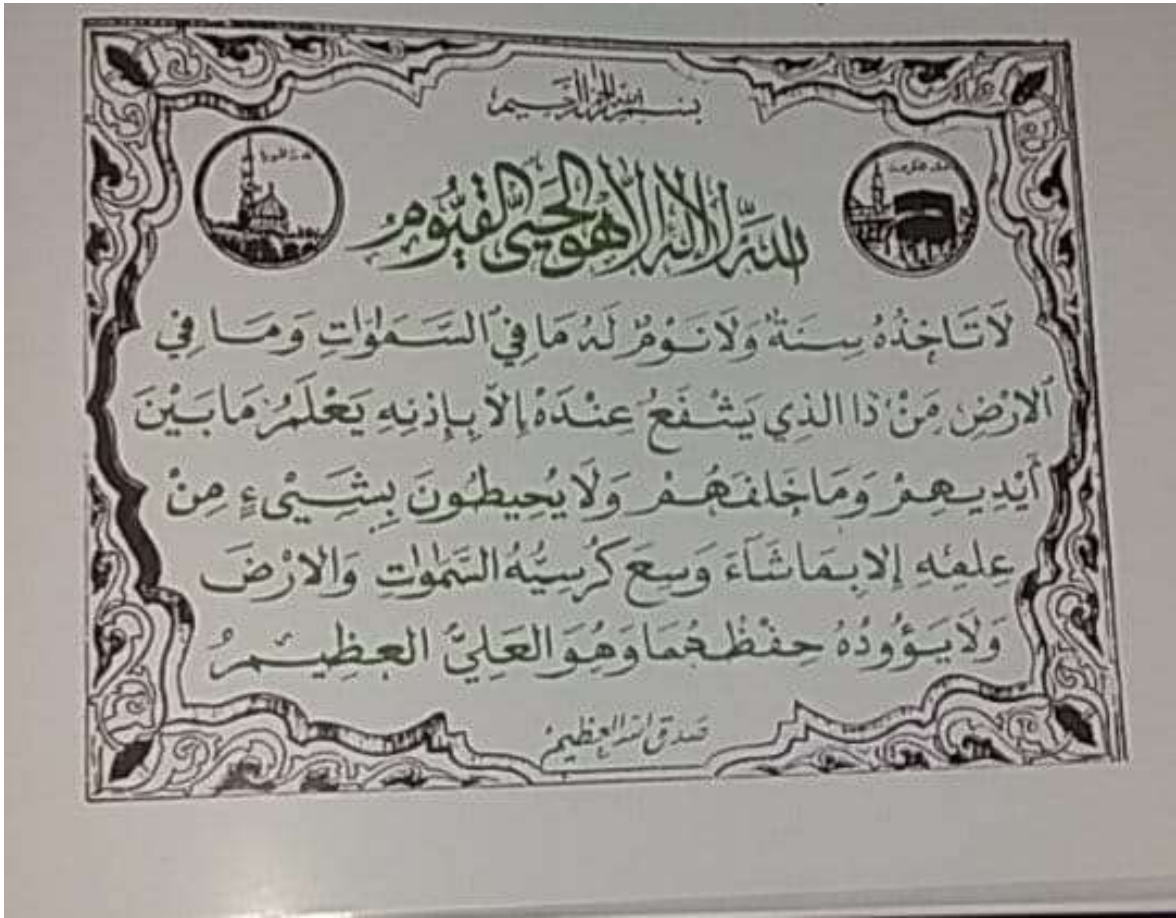 بسم الله الرحمن الرحيم
الله لا اله الا هو الحي القيوم
لَا تَاخِذُهُ سِنَةٌ وَلَا نَوْمٌ لَهُ مَا فِي السَّمَوَاتِ وَمَا فِي
الارْضِ مَنْ ذَا الذِي يَشْفَعُ عِنْدَهُ إِلاَّ بِإِذنِهِ يَعْلَمُ مَا بَيْنَ
أَيْدِيهِمْ وَمَا خَلفَهُمْ وَلَا يُحِيطُونَ بِشَيْءٍ مِنْ
عِلمِهِ إِلا بِمَا شَآءَ وَسِعَ كُرْسِيُّهُ السَّمٰوَاتِ وَالارْضَ
وَلَا يَؤُودُهُ حِفْظُهُمَا وَهُوَ العَلِيُّ العَظِيمُ
صدق الله العظيم